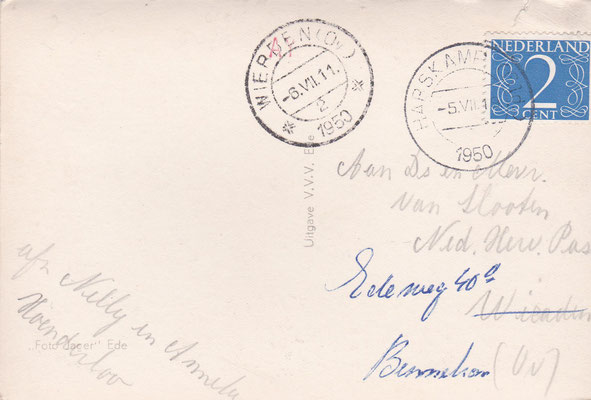 WIERDEN (Ov)
-6.VII.11.
2
1950
HARSKAMP
-5.VII.1
1950
NEDERLAND
2
CENT
Uitgave V.V.V. Ede
Aan Ds en Mevr.
van Slooten
Ned. Herv. Pas
Edeweg 40a
Wierden
Bennekom (Ov)
afz Nelly en Anneke
Hoenderloo
„Foto Jager" Ede